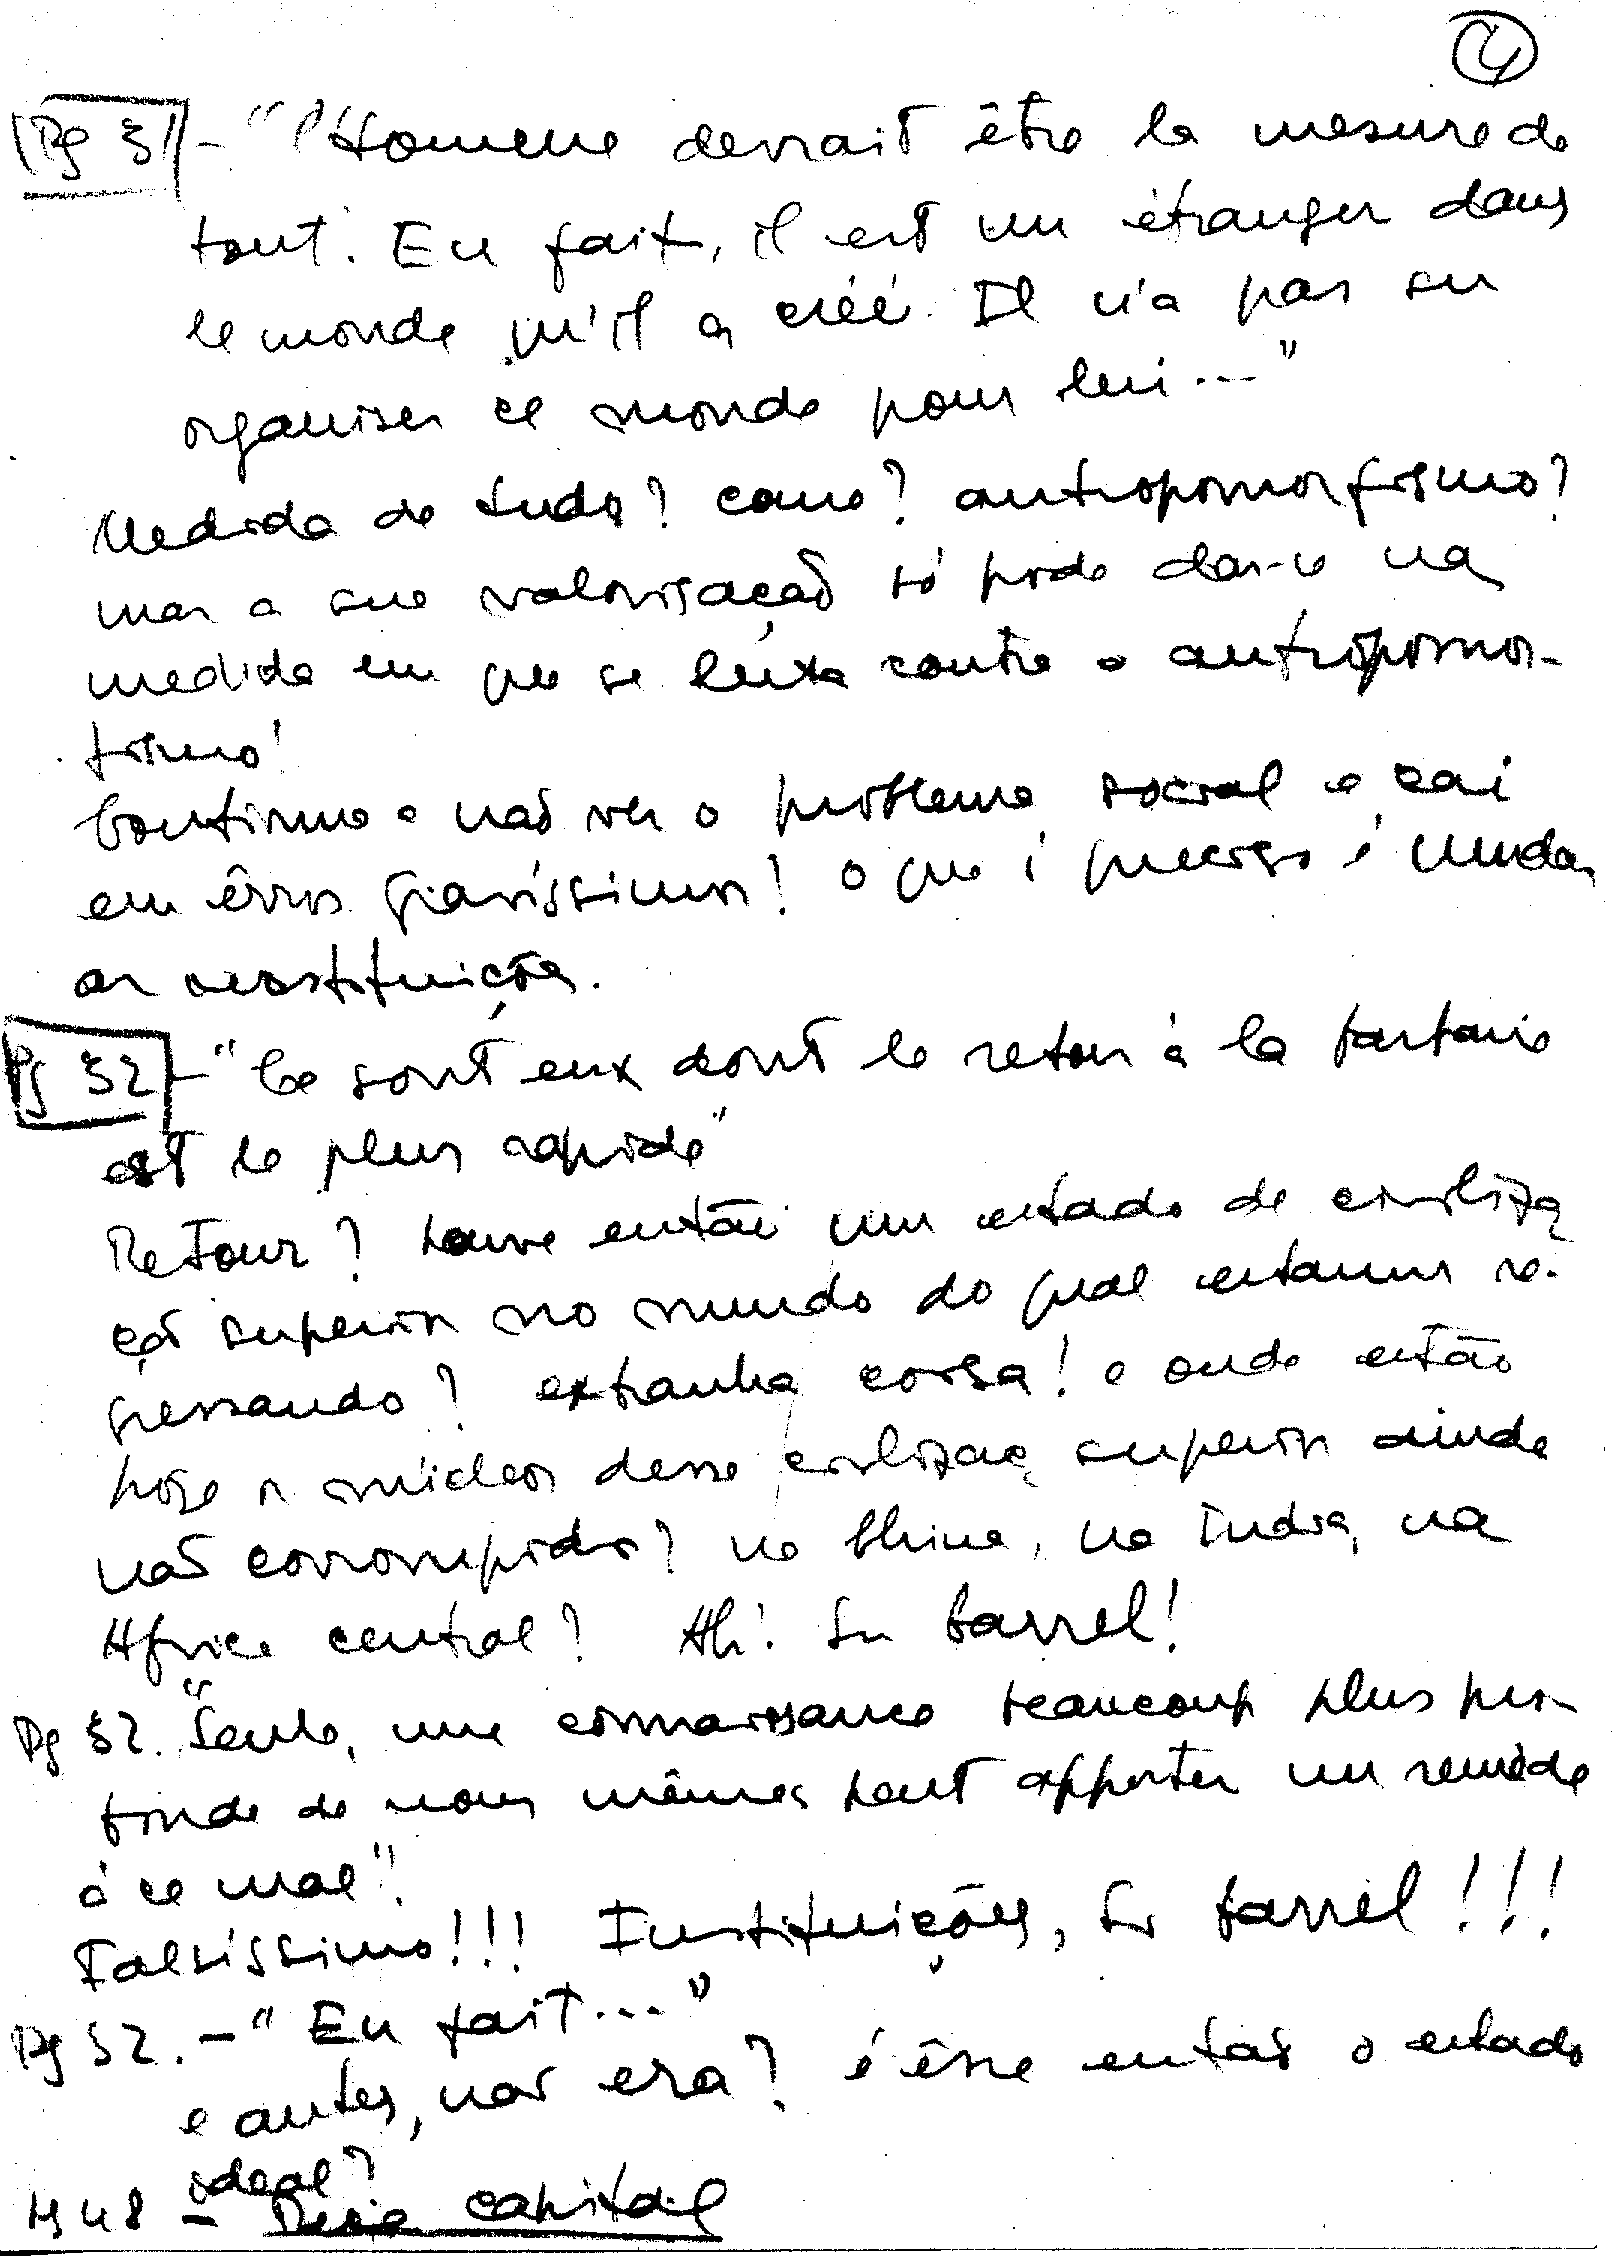 4
Pg 31 - "l'Homme devrait être la mesure de
tout. En fait, il est un étranger dans
le monde qu'il a créé. Il n'a pas su
organiser ce monde pour lui..."
Medida de tudo? como? antropomorfismo?
mas a sua valorisação só pode dar-se na
medida em que se luta contra o antropomor-
fismo!
Continua a não ver o problema social e cai
em êrros gravíssimos! o que é preciso é mudar
as instituições.
Pg 32 - "Ce sont eux dont le retour à la barbarie
est le plus rapide"
Retour? houve então um estado de civiliza
ção superior no mundo do qual estamos re-
gressando? extranha coisa! e onde estão
hoje os núcleos dessa civilização superior ainda
não corrompidos? na China, na India, na
Africa central? Ah! Sr Carrel!
Pg 32. "Seule, une connaissance beaucoup plus pro-
fonde de nous mêmes peut apporter un remède
à ce mal".
Falsíssimo!!! Instituições, Sr Carrel!!!
Pg 32. - "En fait..."
e antes, não era? é êsse então o estado
ideal?
Pg 48 - Ideia capital